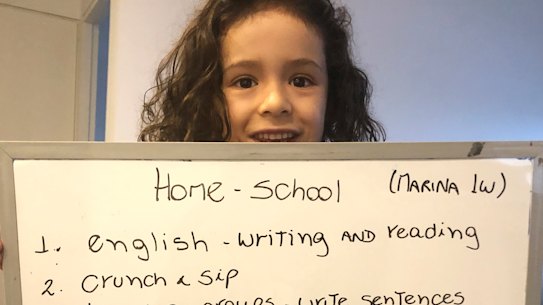 Home - School (MARINA 1W)
1. english - writing AND reading
2. crunch & sip
groups - write sentences